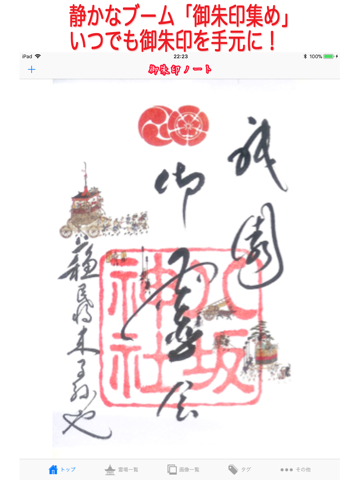 静かなブーム「御朱印集め」
いつでも御朱印を手元に！
iPad
22:23
100%
御朱印ノート
祇園
御靈会
八坂
神社
蘇民将来子孫也
トップ
霊場一覧
画像一覧
タグ
その他